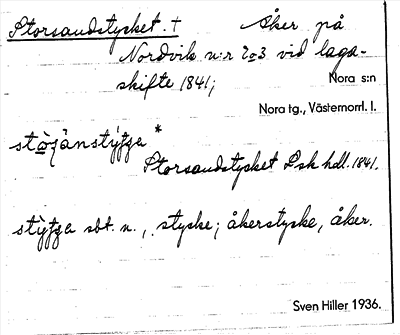 Storsandstycket. † Åker på
Nordvik n:r 2o3 vid laga-
skifte 1841;
Nora s:n
Nora tg., Västernorrl. l.
*
Storsandstycket Lsk hdl. 1841.
sbt. n., stycke; åkerstycke, åker.
Sven Hiller 1936.